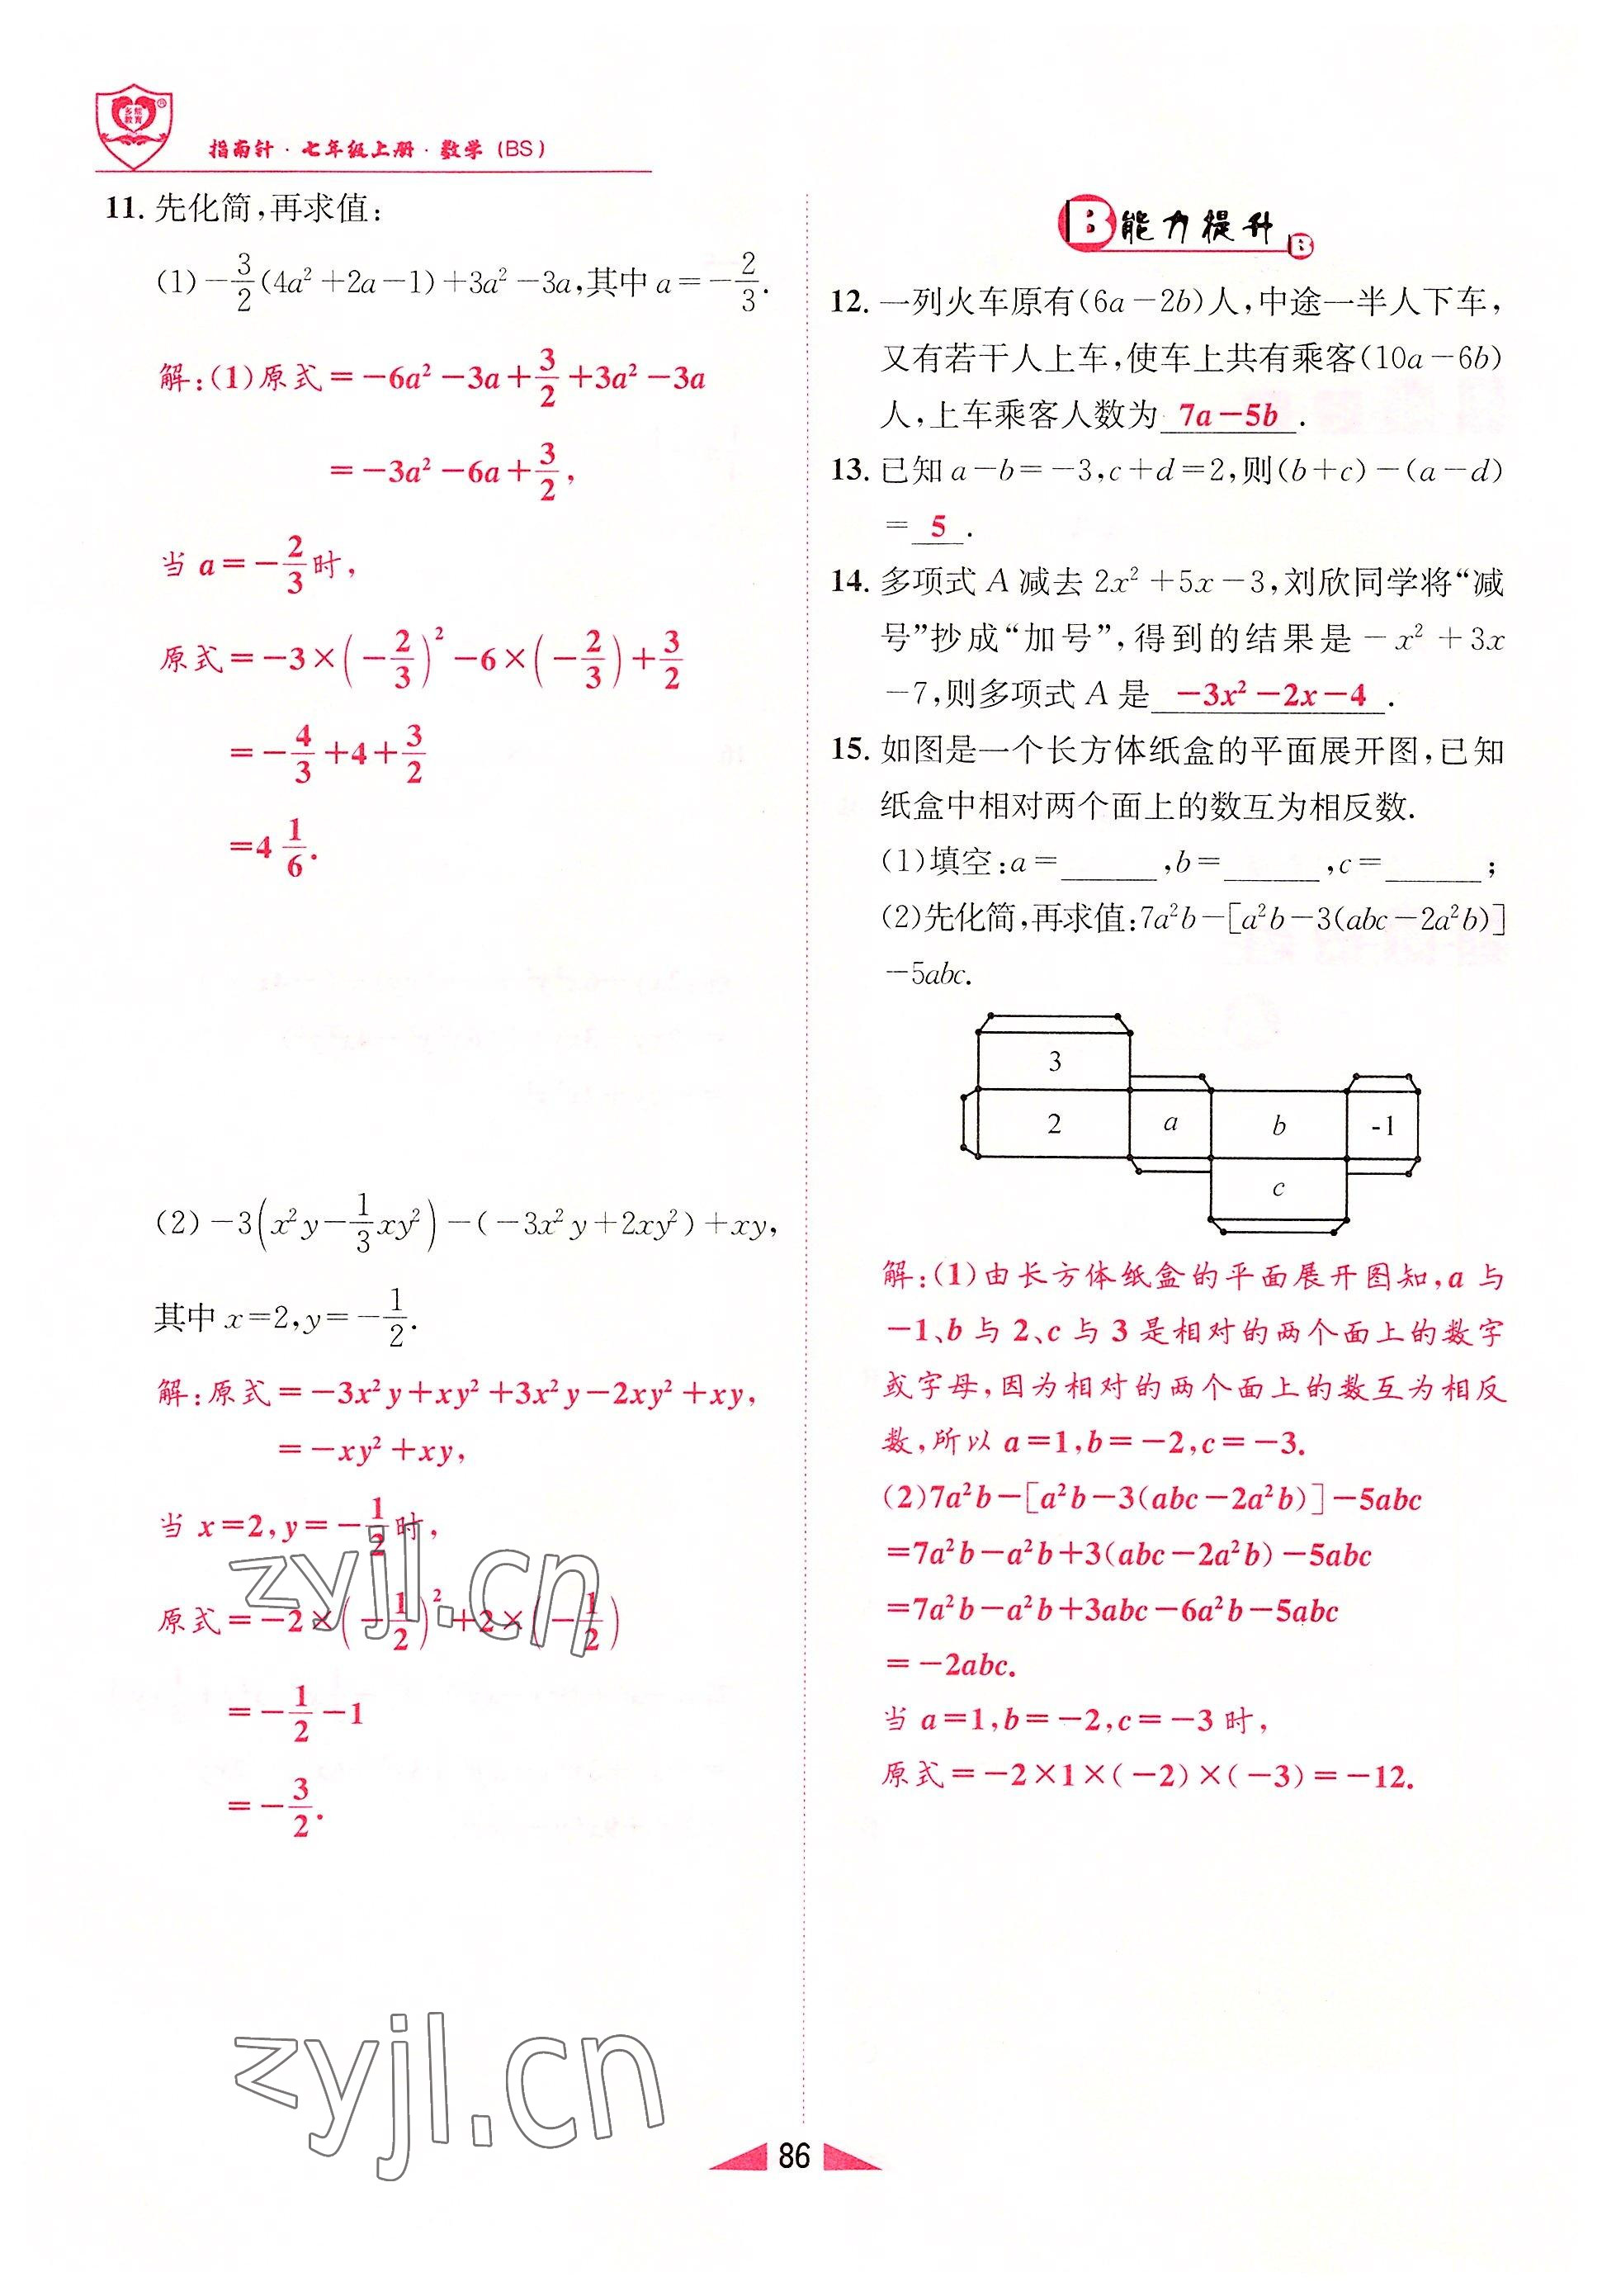 多熊
教育
指南针·七年级上册·数学(BS)
11. 先化简,再求值:
(1)−3/2(4a²+2a−1)+3a²−3a,其中a=−2/3.
解:(1)原式=−6a²−3a+3/2+3a²−3a
=−3a²−6a+3/2,
当a=−2/3时,
原式=−3×(−2/3)²−6×(−2/3)+3/2
=−4/3+4+3/2
=4 1/6.
(2)−3(x²y−1/3xy²)−(−3x²y+2xy²)+xy,
其中x=2,y=−1/2.
解:原式=−3x²y+xy²+3x²y−2xy²+xy,
=−xy²+xy,
当x=2,y=−1/2时,
原式=−2×(−1/2)²+2×(−1/2)
=−1/2−1
=−3/2.
B能力提升B
12. 一列火车原有(6a−2b)人,中途一半人下车,
又有若干人上车,使车上共有乘客(10a−6b)
人,上车乘客人数为 7a−5b .
13. 已知a−b=−3,c+d=2,则(b+c)−(a−d)
= 5 .
14. 多项式A减去2x²+5x−3,刘欣同学将“减
号”抄成“加号”,得到的结果是−x²+3x
−7,则多项式A是 −3x²−2x−4 .
15. 如图是一个长方体纸盒的平面展开图,已知
纸盒中相对两个面上的数互为相反数.
(1)填空:a=______,b=______,c=______;
(2)先化简,再求值:7a²b−[a²b−3(abc−2a²b)]
−5abc.
3
2 a b -1
c
解:(1)由长方体纸盒的平面展开图知,a与
−1、b与2、c与3是相对的两个面上的数字
或字母,因为相对的两个面上的数互为相反
数,所以a=1,b=−2,c=−3.
(2)7a²b−[a²b−3(abc−2a²b)]−5abc
=7a²b−a²b+3(abc−2a²b)−5abc
=7a²b−a²b+3abc−6a²b−5abc
=−2abc.
当a=1,b=−2,c=−3时,
原式=−2×1×(−2)×(−3)=−12.
zyjl.cn
zyjl.cn
86